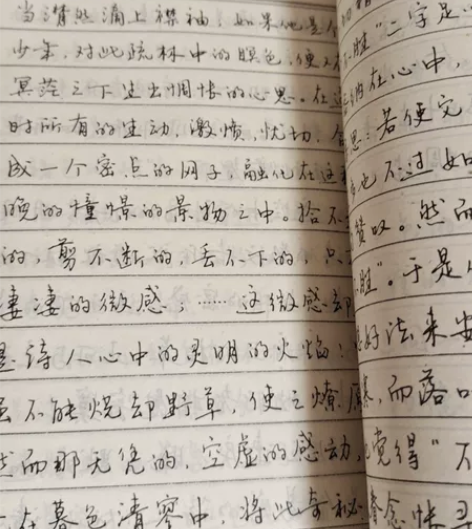 当潸然滴上襟袖;如果他是
少年,对此疏林中的暝色,便又
冥茫之下生出惆怅的心思。在
时所有的生动,激愤,忧切,合
成一个密点的网子,融化在这
晚的憧憬的景物之中。拾不
的,剪不断的,丢不下的,只
凄凄的微感;……这微感却
是诗人心中的灵明的火焰!
不能烧却野草,使之燎原
然而那无凭的,空虚的感动,
在暮色清寥中,将此奇秘
胜"二字足
在心中,
思,若便完
也不过如
赞叹。然而
胜"。于是
好法来安
,而落
觉得"不